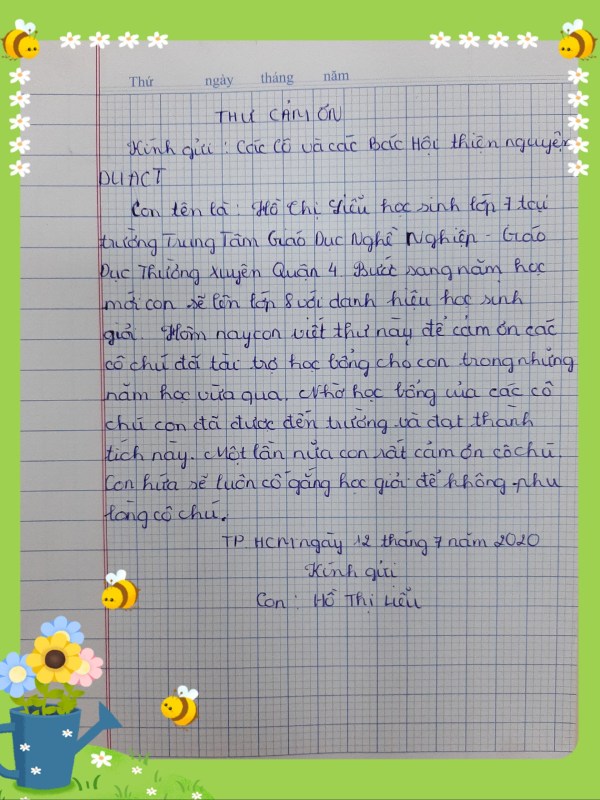 Thứ ngày tháng năm
THƯ CẢM ƠN
Kính gửi : Các Cô và các Bác Hội thiện nguyện
DUACT
Con tên là : Hồ Thị Liễu học sinh lớp 7 tại
trường Trung Tâm Giáo Dục Nghề Nghiệp - Giáo
Dục Thường Xuyên Quận 4. Bướt sang năm học
mới con sẽ lên lớp 8 với danh hiệu học sinh
giỏi. Hôm nay con viết thư này để cảm ơn các
cô chú đã tài trợ học bổng cho con trong những
năm học vừa qua. Nhờ học bổng của các cô
chú con đã được đến trường và đạt thành
tích này. Một lần nữa con rất cảm ơn cô chú.
Con hứa sẽ luôn cố gắng học giỏi để không phụ
lòng cô chú.
TP HCM ngày 12 tháng 7 năm 2020
Kính gửi
Con : Hồ Thị Liễu